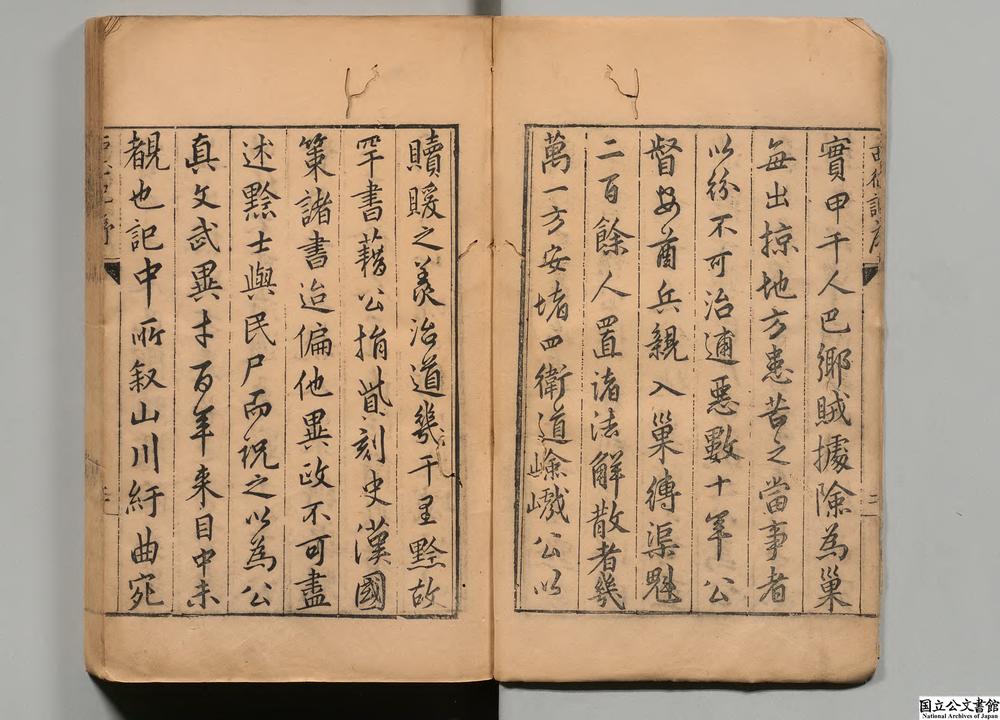 實甲千人巴鄉賊據險為巢
每出掠地方患苦之當事者
以紛不可治逋惡數十年公
督安酋兵親入巢縛渠魁
二百餘人置諸法解散者幾
萬一方安堵四衛道嶮巇公以
贖鍰之羨治道幾千里黔故
罕書藉公捐貲刻史漢國
策諸書迨徧他異政不可盡
述黔士與民尸而祝之以為公
真文武異才百年来目中未
覩也記中所叙山川紆曲宛
二
国立公文書館
National Archives of Japan